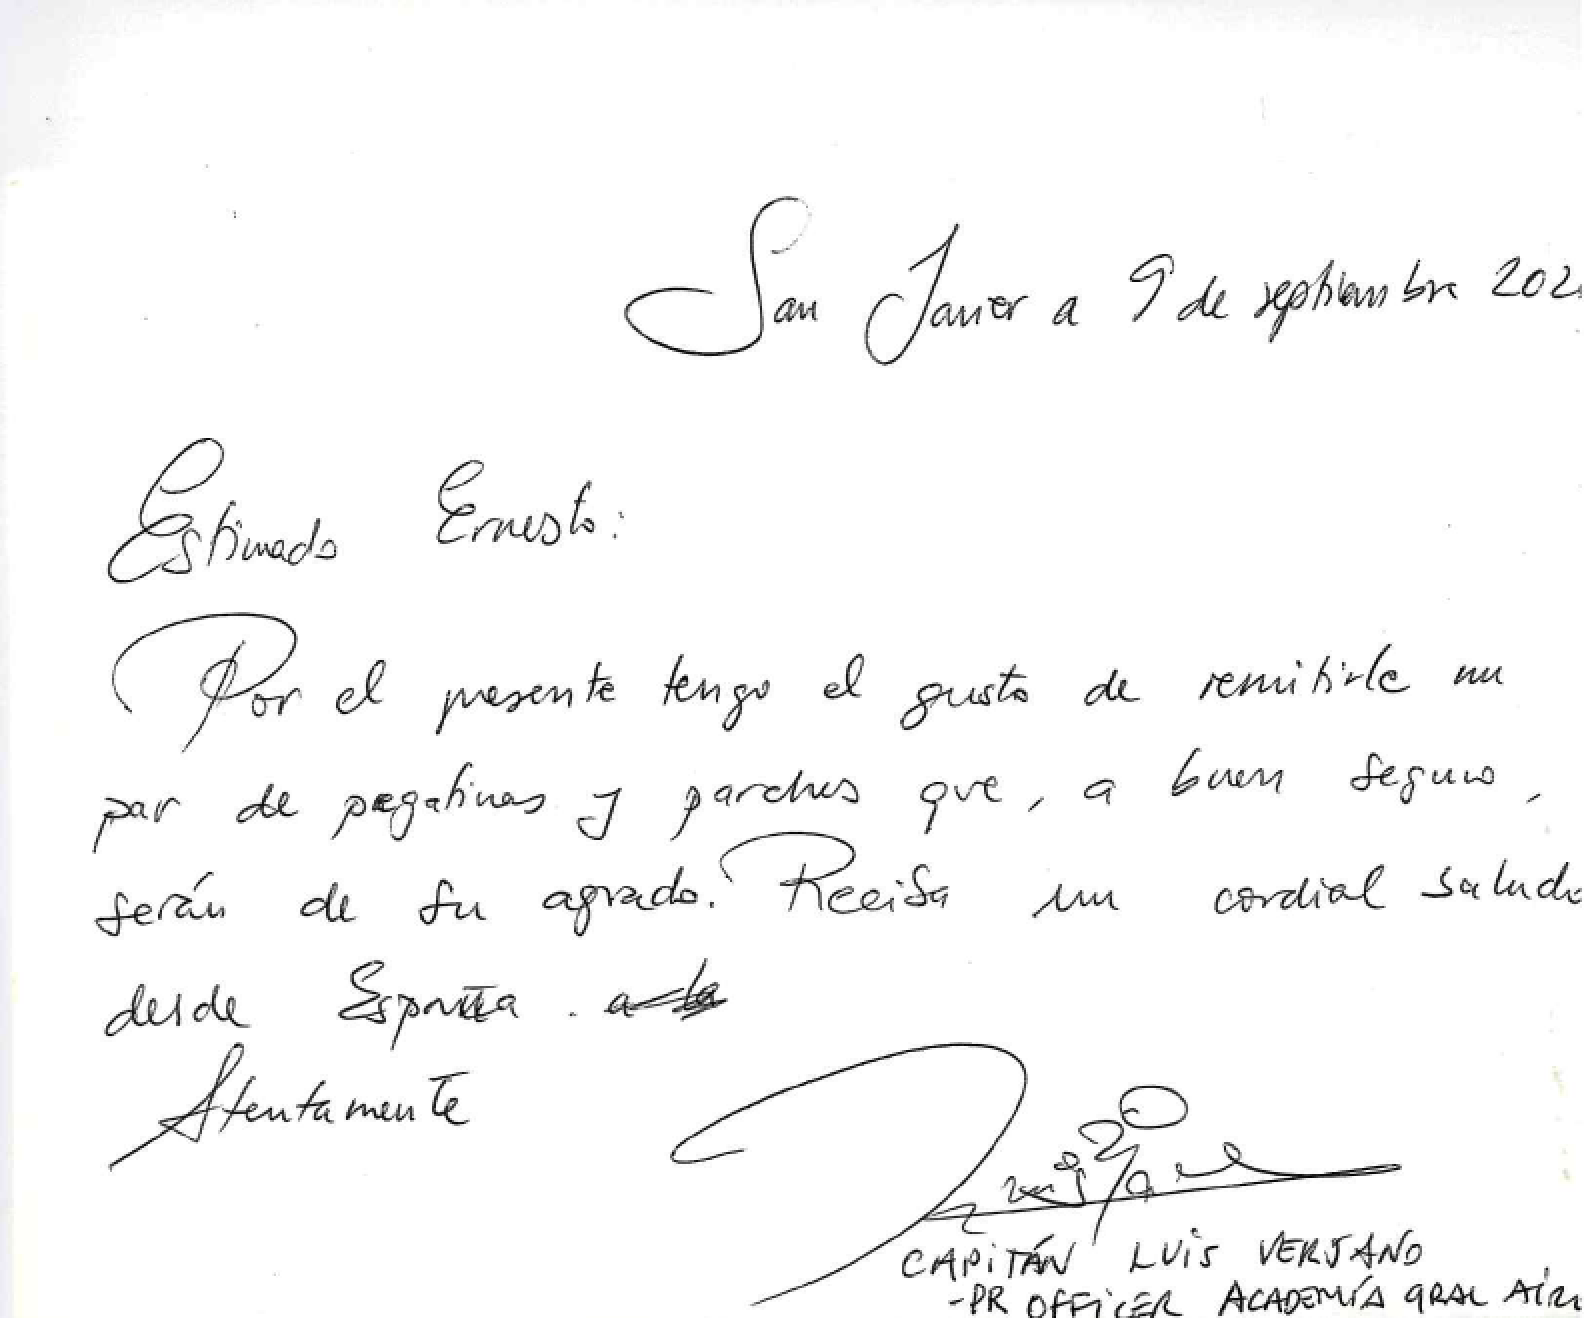 San Javier a 9 de septiembre 202
Estimado Ernesto:
Por el presente tengo el gusto de remitirle un
par de pegatinas y parches que, a buen seguro,
serán de su agrado. Reciba un cordial saludo
desde España. a la
Atentamente
CAPITÁN LUIS VERJANO
-PR OFFICER ACADEMÍA GRAL AÍR